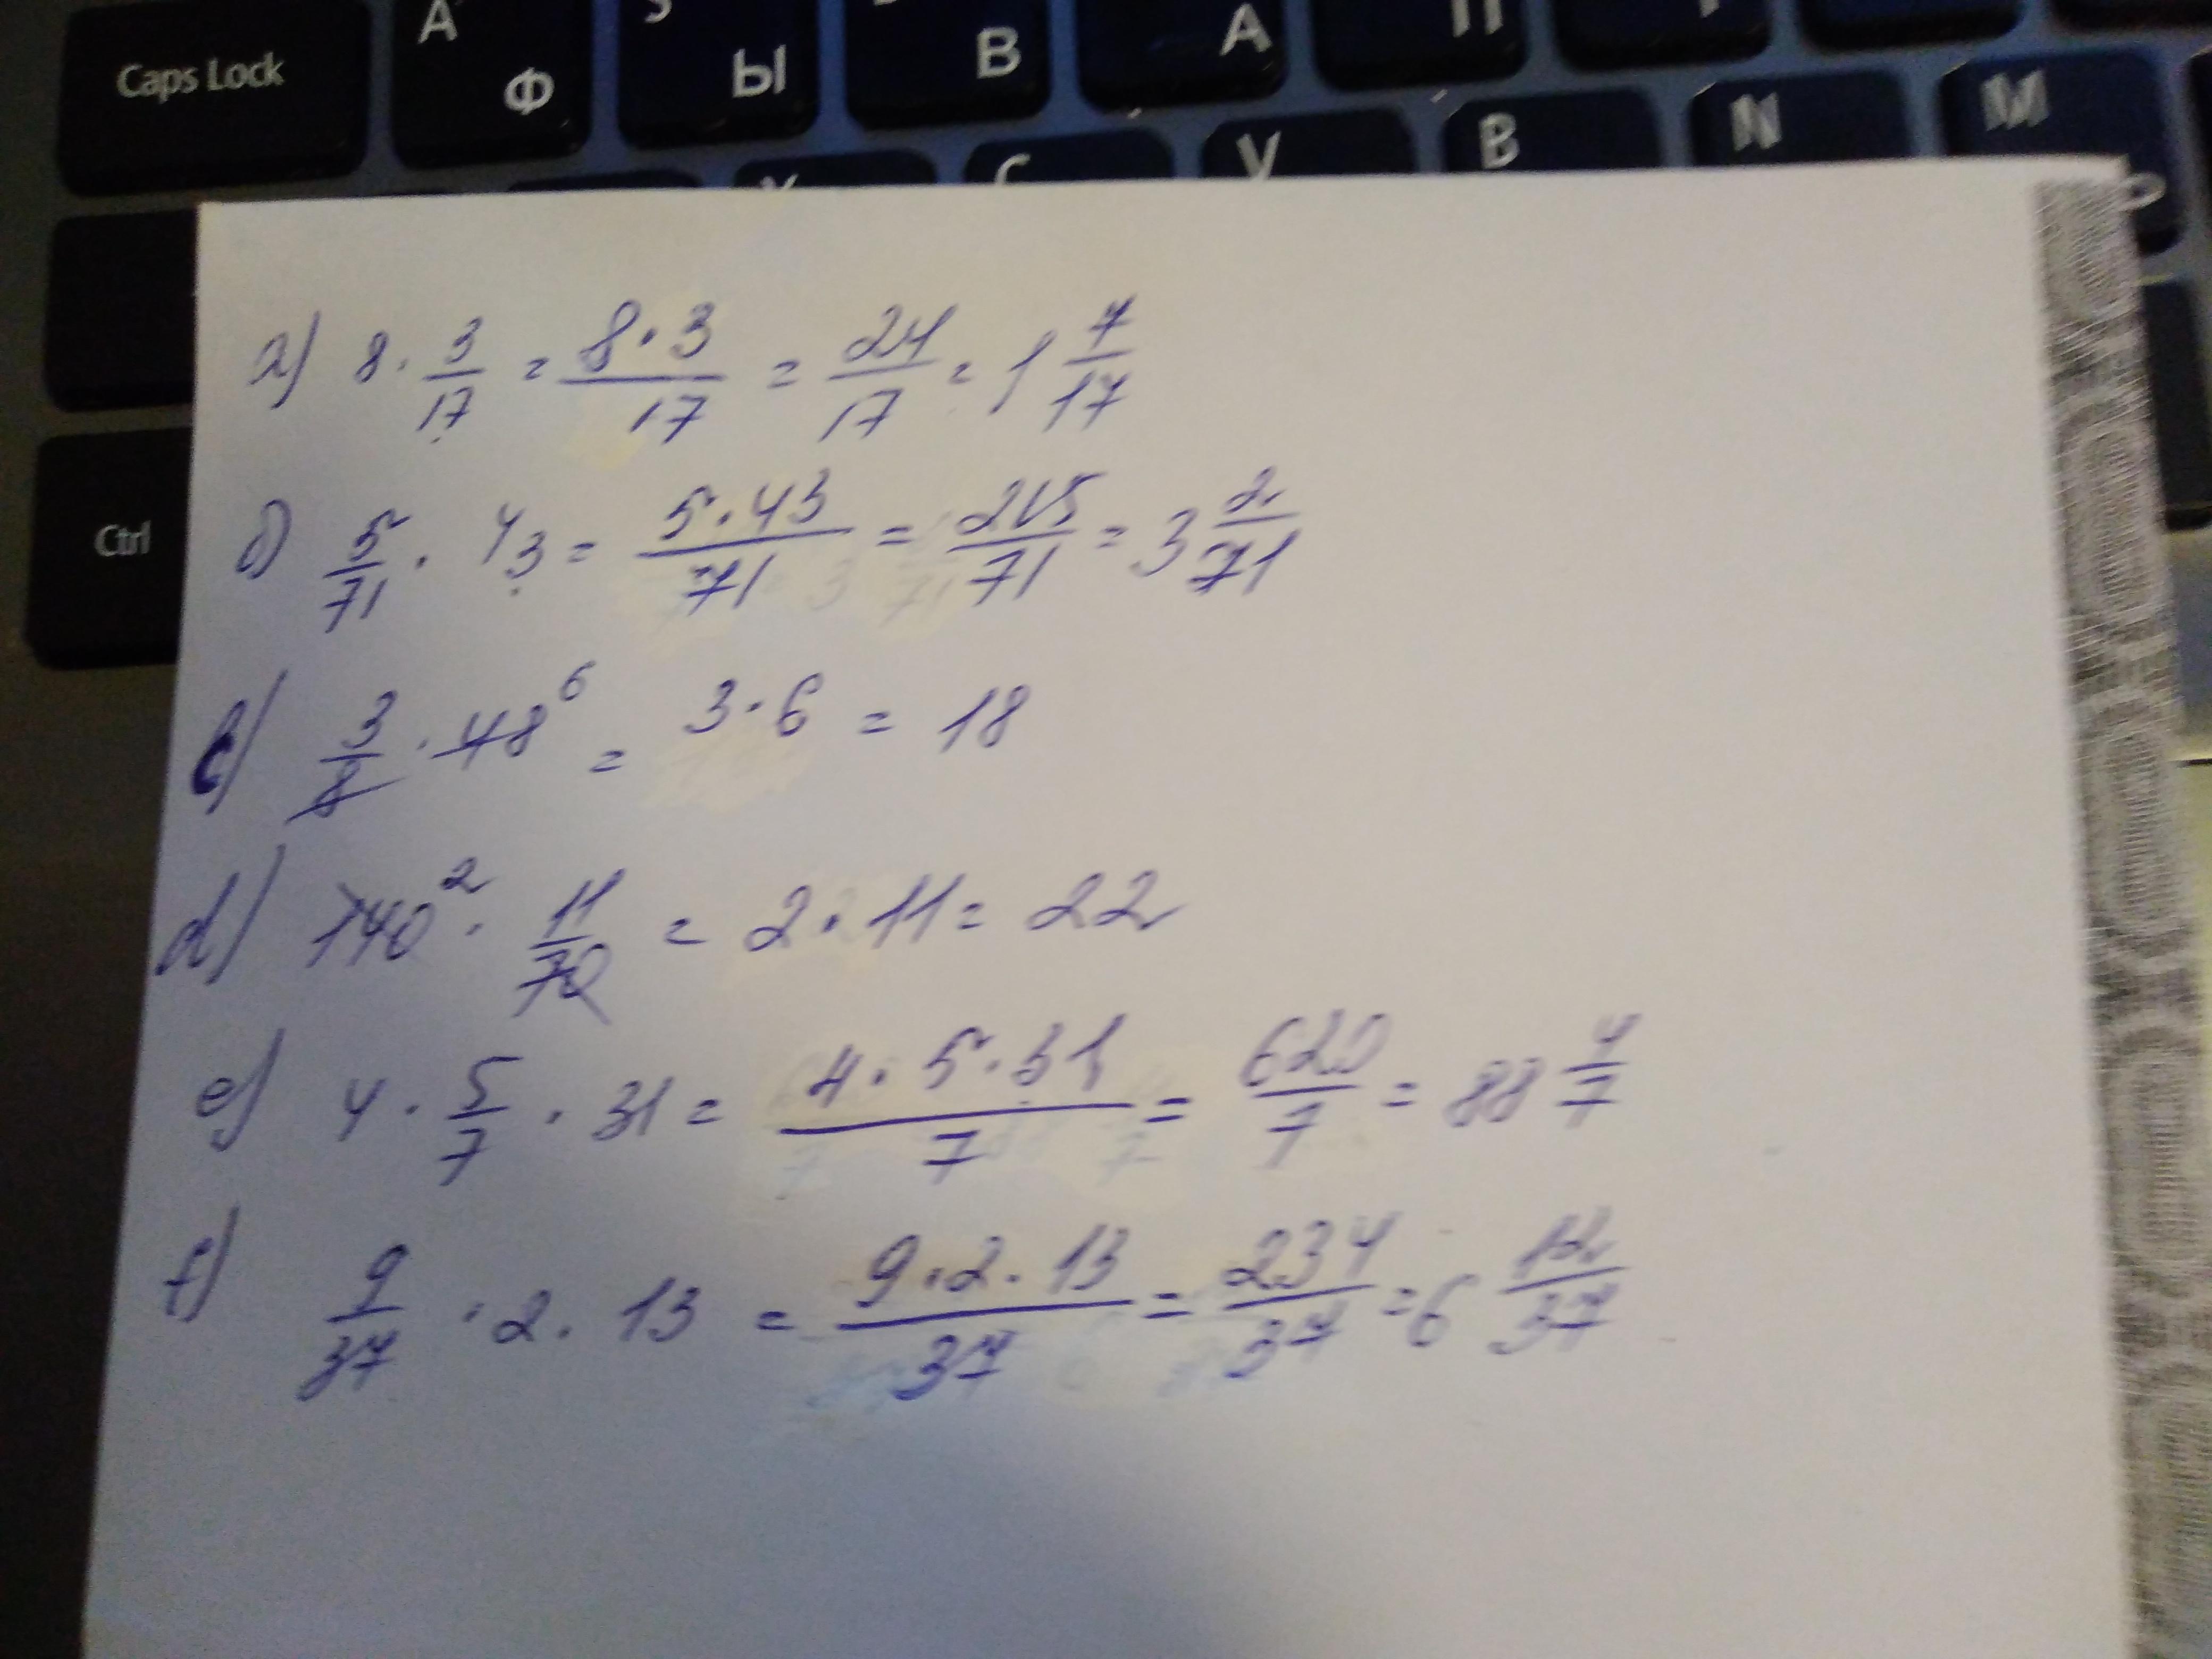 A S
Caps Lock Ф Ы В А П
C V B N M
Ctrl
a) 8 · 3/17 = 8·3/17 = 24/17 = 1 7/17
б) 5/71 · 43 = 5·43/71 = 215/71 = 3 2/71
c) 3/8 · 48⁶ = 3·6 = 18
d) 140² · 11/70 = 2·11 = 22
e) 4 · 5/7 · 31 = 4·5·31/7 = 620/7 = 88 4/7
f) 9/37 · 2 · 13 = 9·2·13/37 = 234/37 = 6 12/37